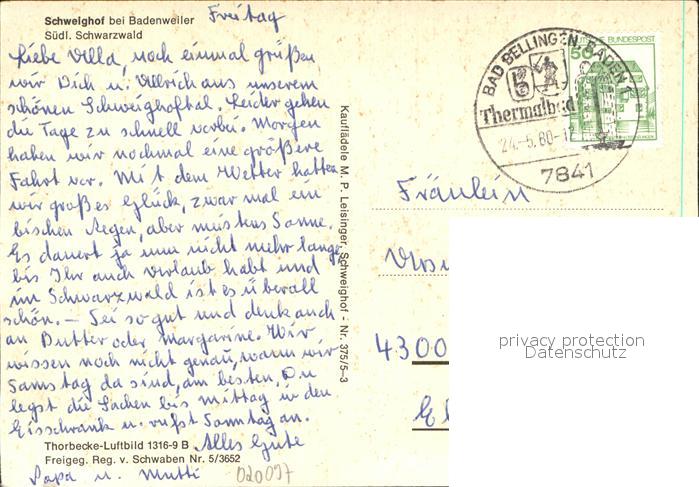 Schweighof bei Badenweiler
Südl. Schwarzwald
Freitag
Liebe Ulla, noch einmal grüßen
wir Dich u. Ullrich aus unserem
schönen Schweighoftal. Leider gehen
die Tage zu schnell vorbei. Morgen
haben wir nochmal eine größere
Fahrt vor. Mit dem Wetter hatten
wir großes Glück, zwar mal ein
bischen Regen, aber meistens Sonne.
Es dauert ja nun nicht mehr lange,
bis Ihr auch Urlaub habt und
im Schwarzwald ist es überall
schön. – Sei so gut und denk auch
an Butter oder Margarine. Wir
wissen noch nicht genau, wann wir
Samstag da sind, am besten, Du
legst die Sachen bis mittag in den
Eisschrank u. rufst Sonntag an.
Alles Gute
Papa u. Mutti
Thorbecke-Luftbild 1316-9 B
Freigeg. Reg. v. Schwaben Nr. 5/3652
020097
Kauflädele M. P. Leisinger, Schweighof - Nr. 375/5-3
DEUTSCHE BUNDESPOST
50
BAD BELLINGEN, BADEN 1
Thermalbad
24.-5.80-12
7841
Fräulein
4300
privacy protection
Datenschutz